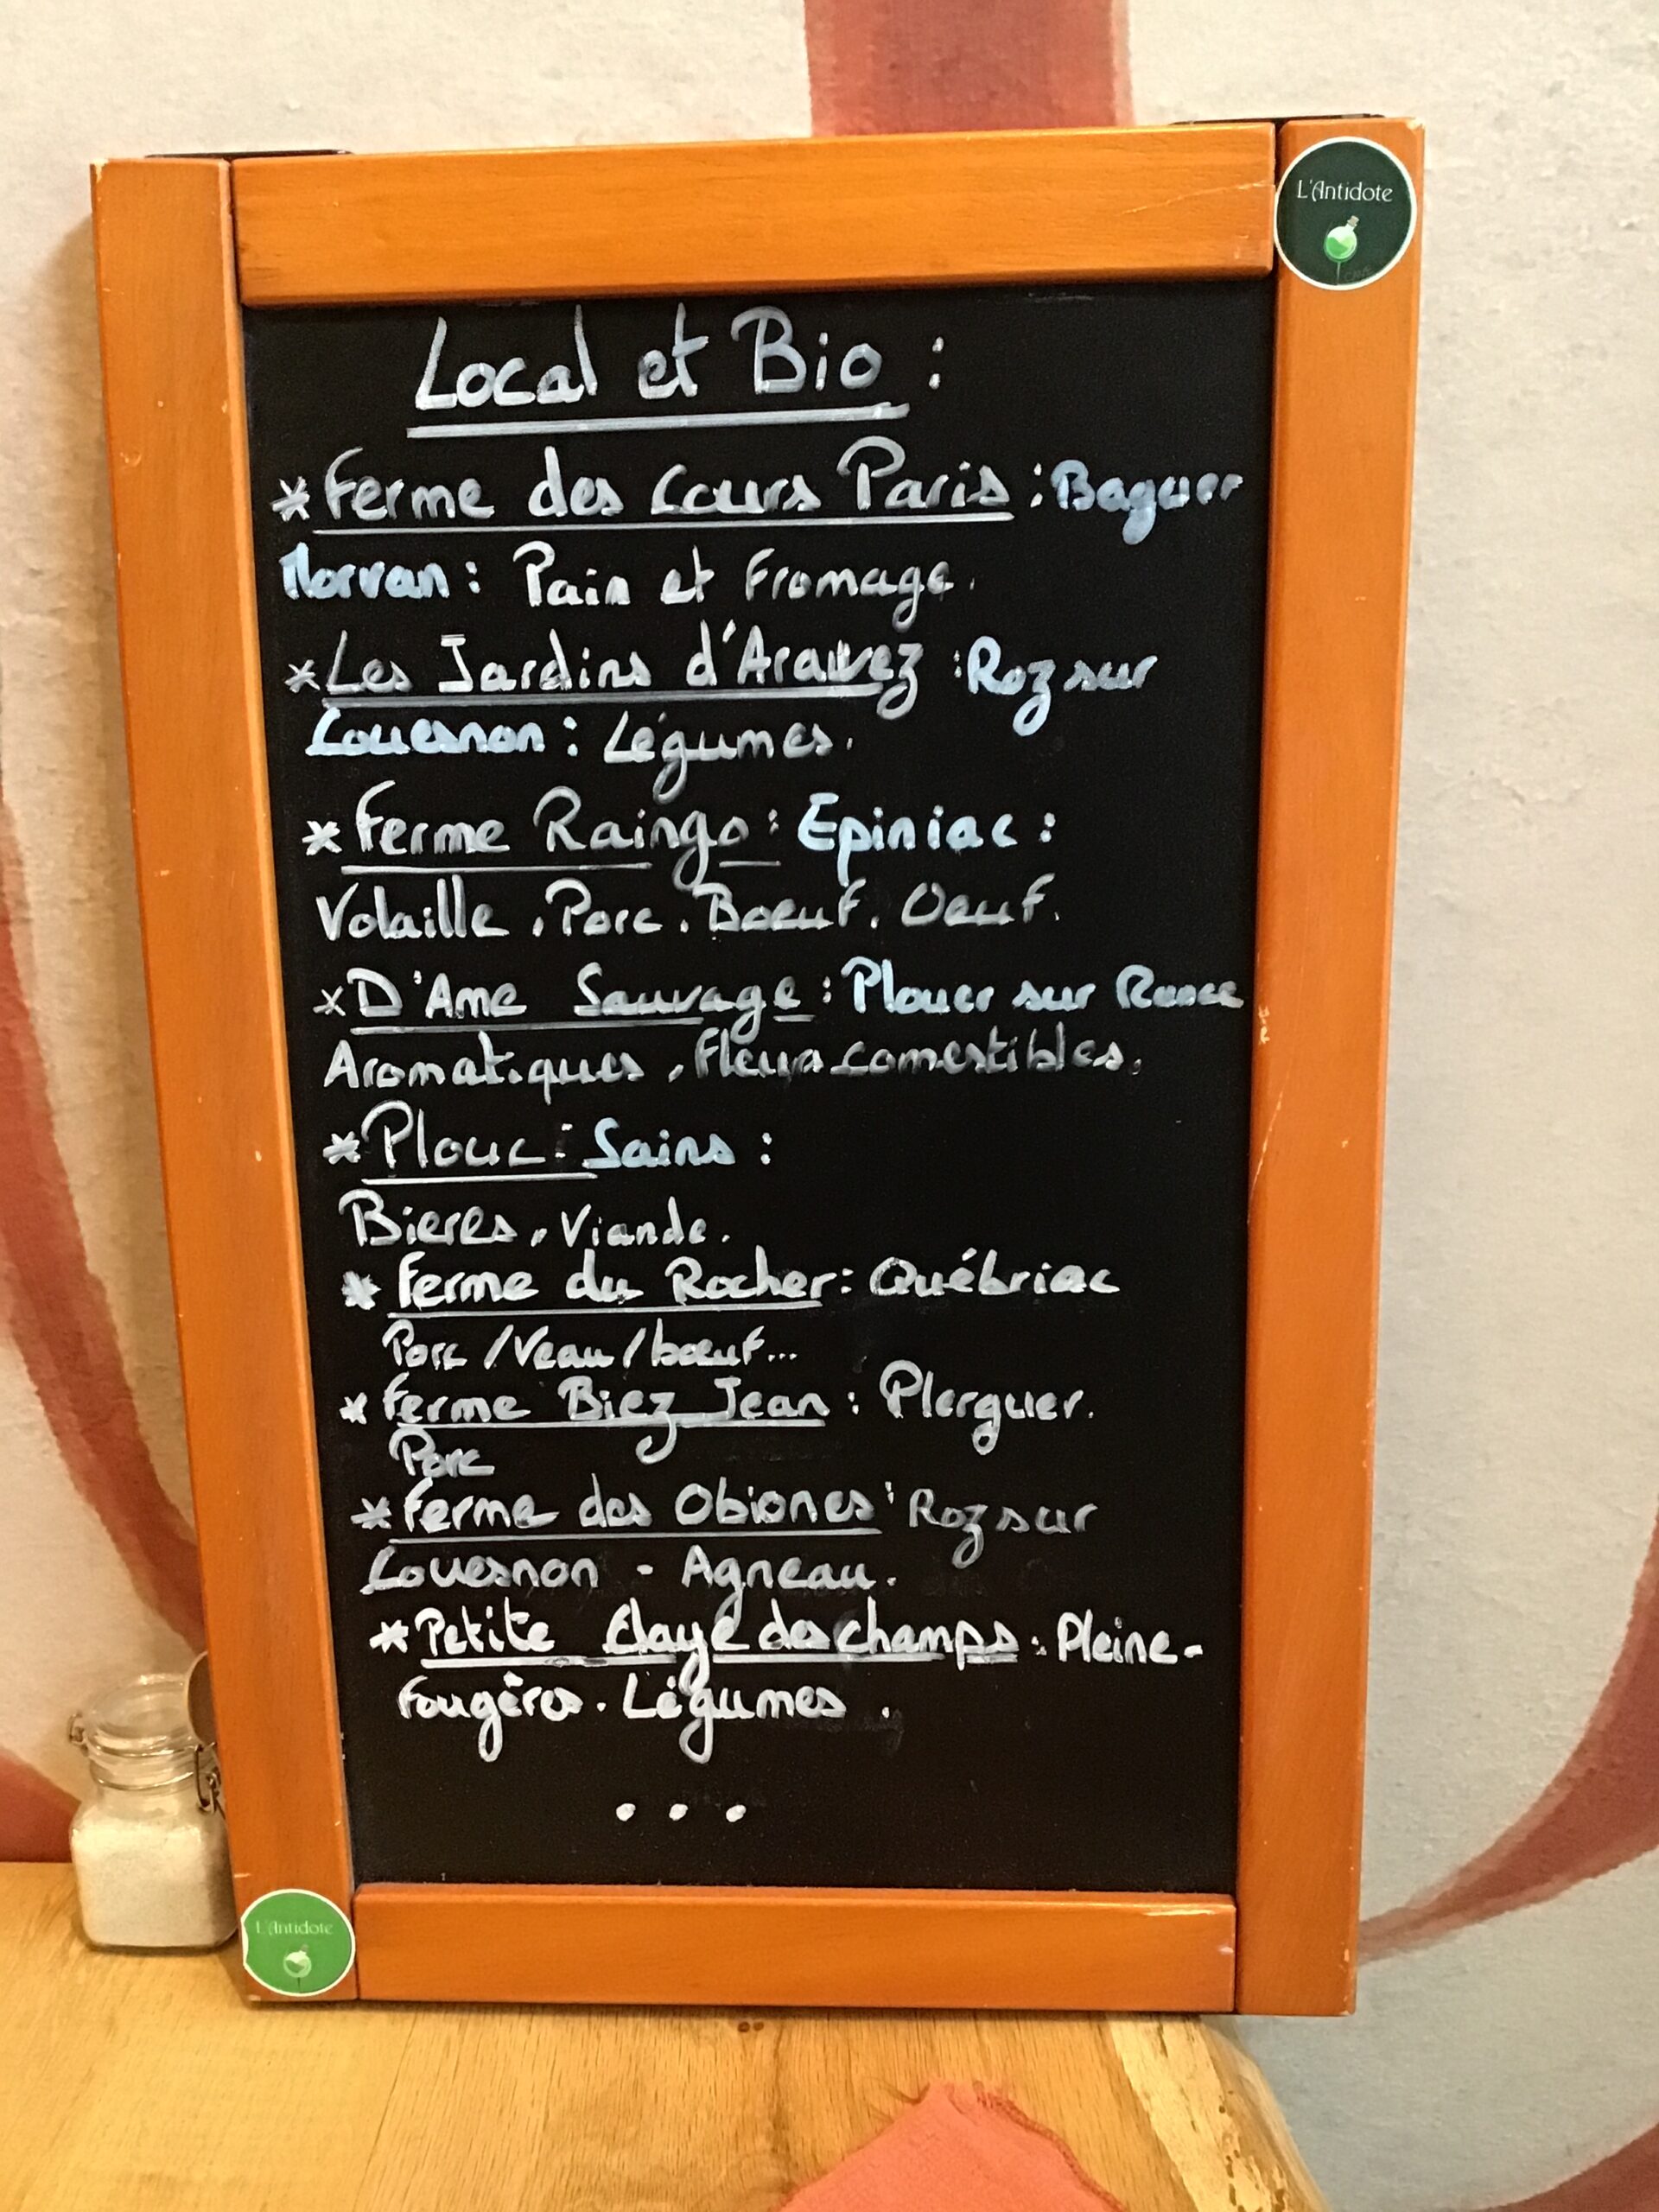 L'Antidote
Local et Bio :
* Ferme des Cours Paris : Baguer
Morvan : Pain et Fromage.
* Les Jardins d'Aravez : Roz sur
Couesnon : Légumes.
* Ferme Raingo : Epiniac :
Volaille, Porc, Boeuf, Oeuf.
* D'Ame Sauvage : Plouer sur Rance
Aromatiques, Fleurs comestibles.
* Plouc : Sains :
Bieres, Viande.
* Ferme du Rocher : Québriac
Porc / Veau / boeuf...
* Ferme Biez Jean : Plerguer.
Porc
* Ferme des Obiones : Roz sur
Couesnon - Agneau.
* Petite Claye des champs : Pleine-
Fougères. Légumes.
...
L'Antidote